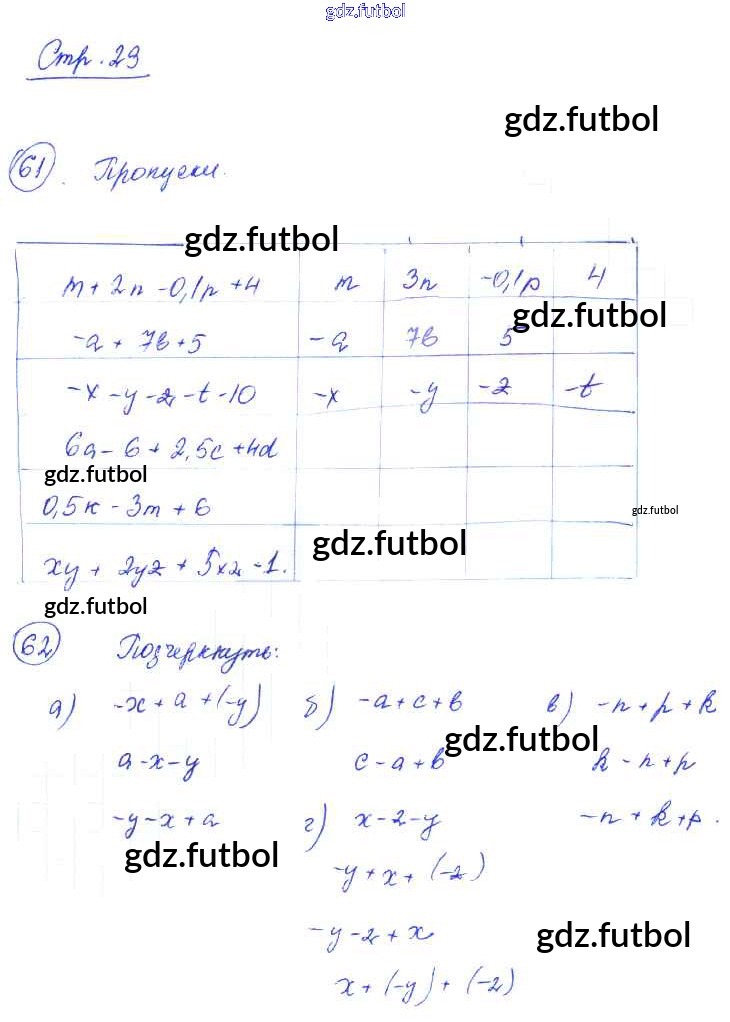 gdz.futbol
Стр. 29
gdz.futbol
61. Пропуски.
gdz.futbol
m + 2n - 0,1p + 4 m 3n -0,1p 4
gdz.futbol
-a + 7b + 5 -a 7b 5
-x - y - z - t - 10 -x -y -z -t
6a - 6 + 2,5c + 4d
gdz.futbol
0,5k - 3m + 6
gdz.futbol
gdz.futbol
xy + 2yz + 5xz - 1.
gdz.futbol
62 Подчеркнуть:
а) -x + a + (-y) б) -a + c + b в) -n + p + k
gdz.futbol
a - x - y c - a + b k - n + p
-y - x + a г) x - 2 - y -n + k + p.
gdz.futbol
-y + x + (-2)
-y - 2 + x
gdz.futbol
x + (-y) + (-2)